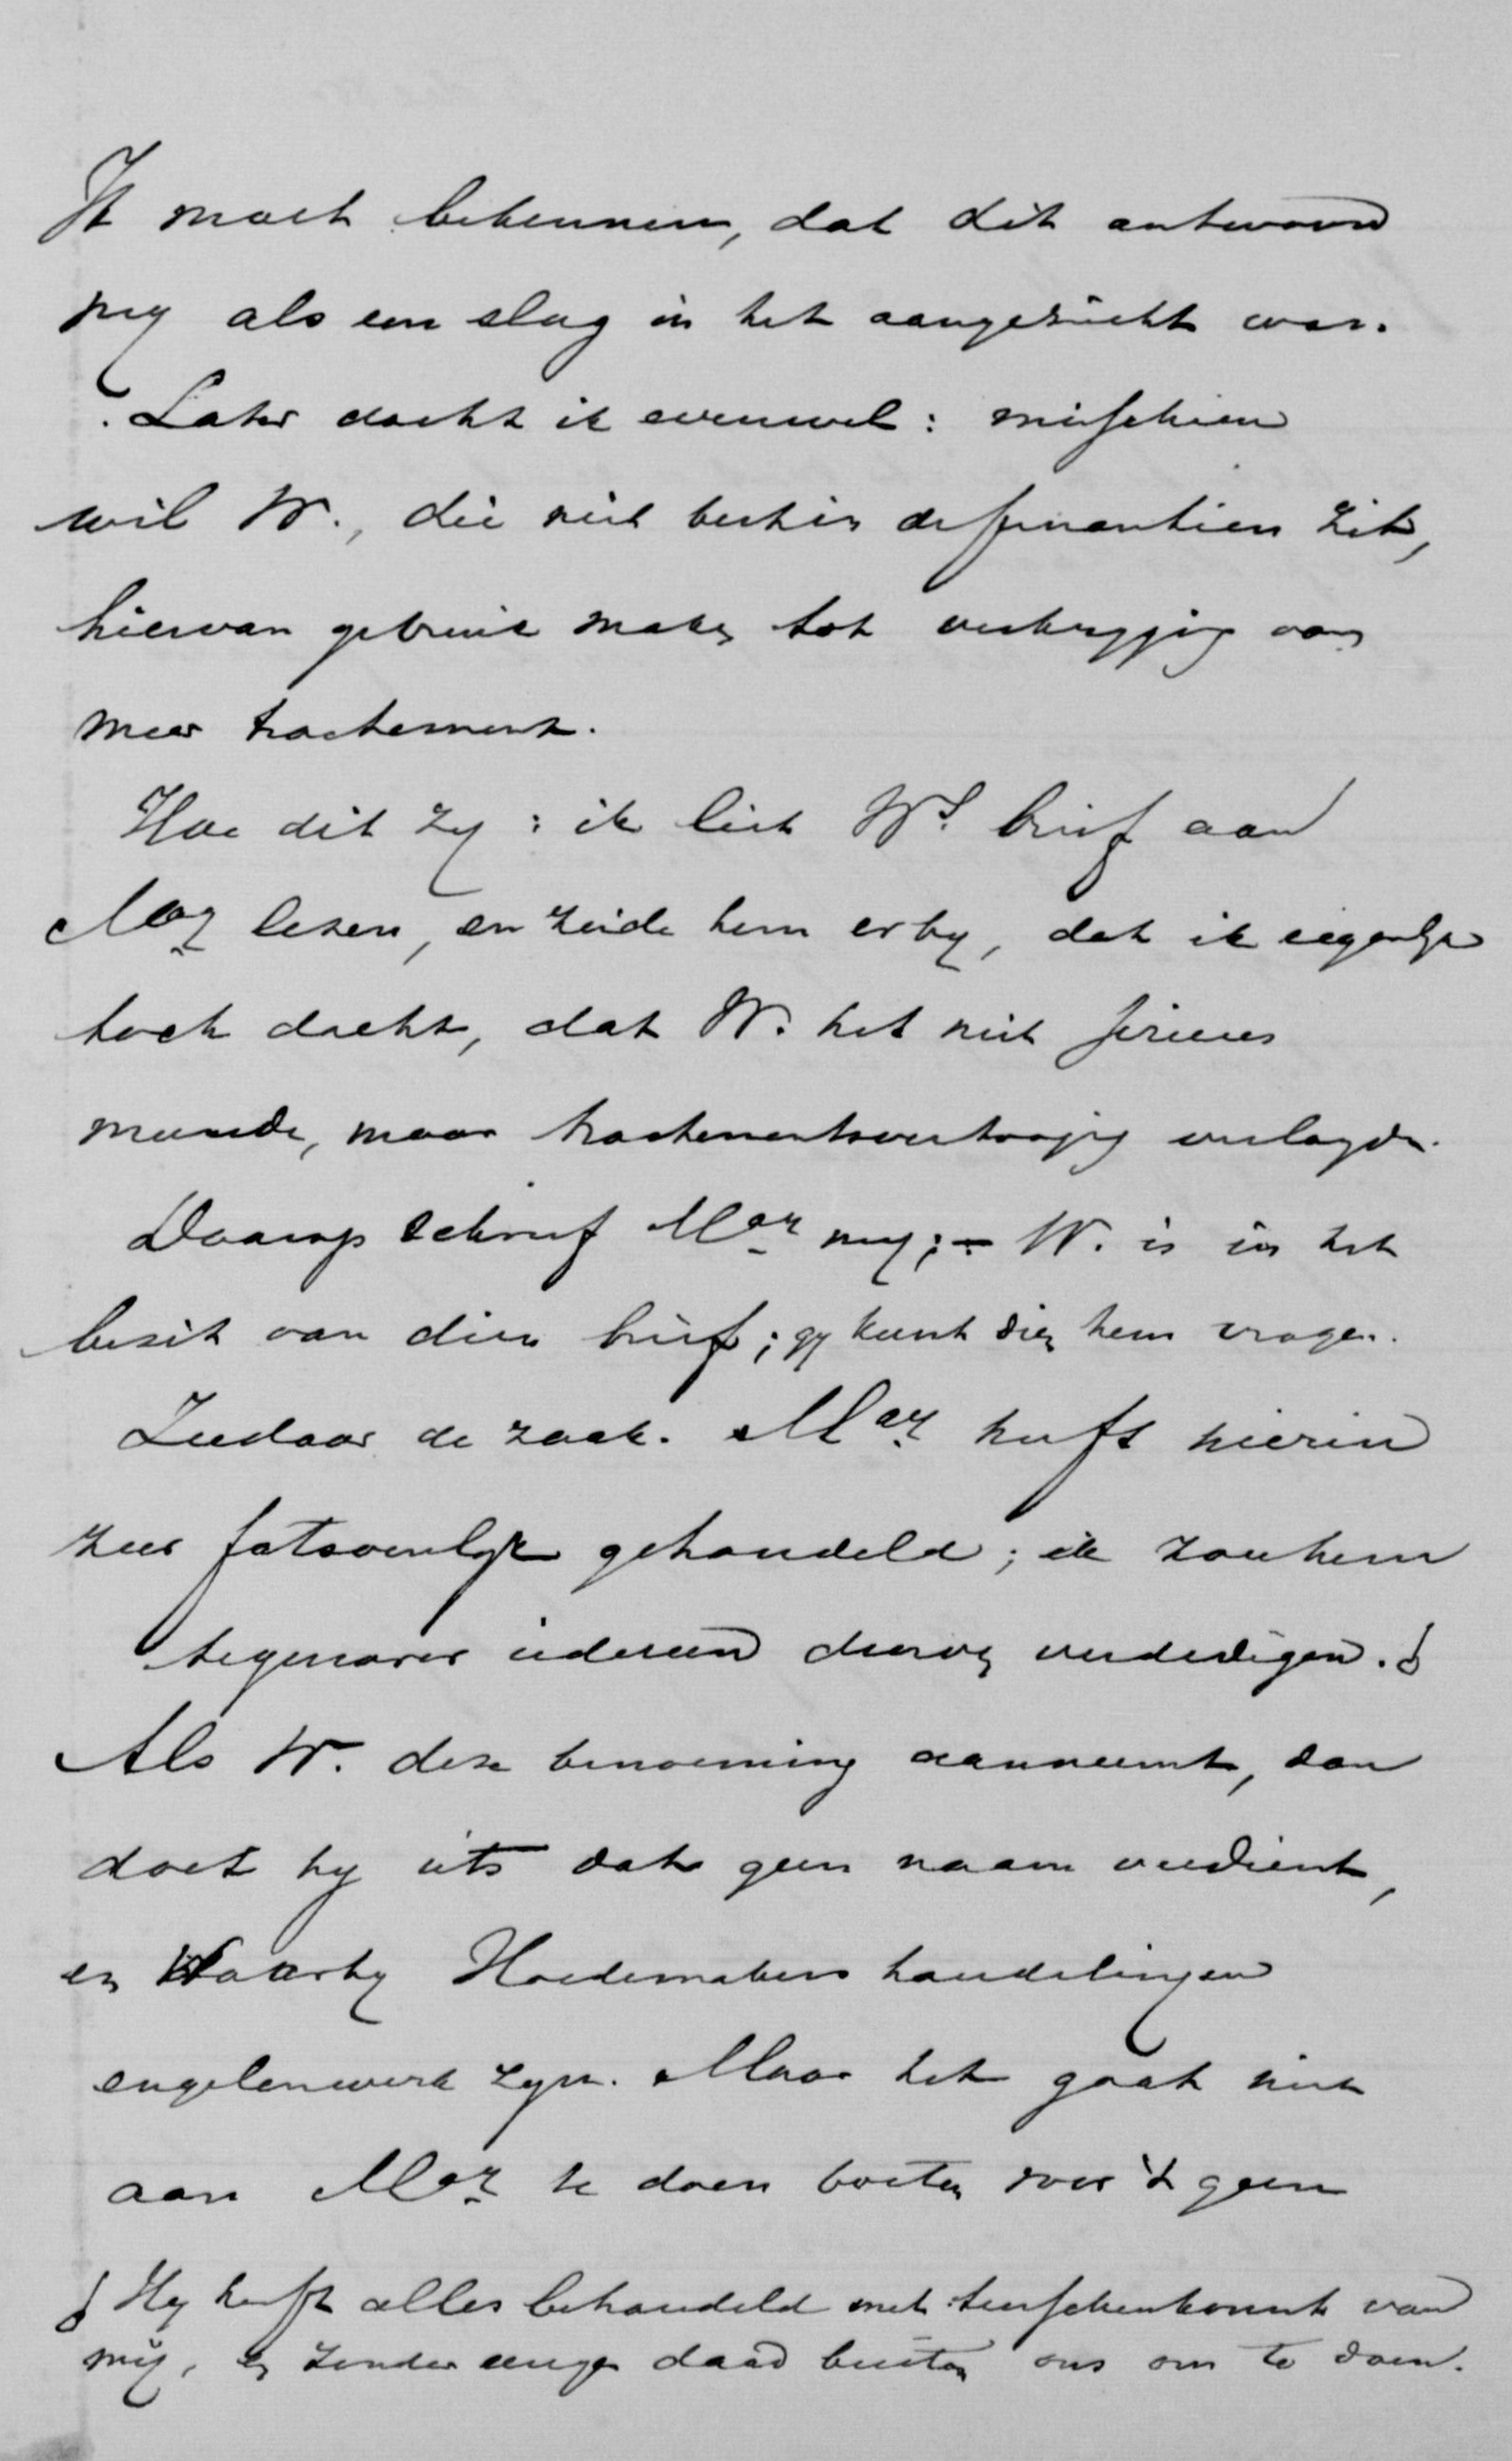 Ik moet bekennen, dat dit antwoord
my als een slag in het aangezicht was.
Later dacht ik evenwel: misschien
wil W., die niet best in de finantien zit,
hiervan gebruik maken tot verkryging van
meer tractement.
Hoe dit zy: ik liet Ws. brief aan
Maz lezen, en zeide hem erby, dat ik eigenlyk
toch dacht, dat W. het niet serieus
meende, maar tractementsverhooging verlangde.
Daarop schreef Maz my; – W. is in het
bezit van dien brief; gy kunt dien hem vragen.
Ziedaar de zaak. Maz heeft hierin
zeer fatsoenlyk gehandeld; ik zou hem
tegenover iedereen durven verdedigen.
Als W. deze benoeming aanneemt, dan
doet hy iets dat geen naam verdient,
en waarby Hoedemakers handelingen
engelenwerk zyn. Maar het gaat niet
aan Maz te doen boeten voor 't geen
Hy heeft alles behandeld met tusschenkomst van
mij, en zonder eenige daad buiten ons om te doen.